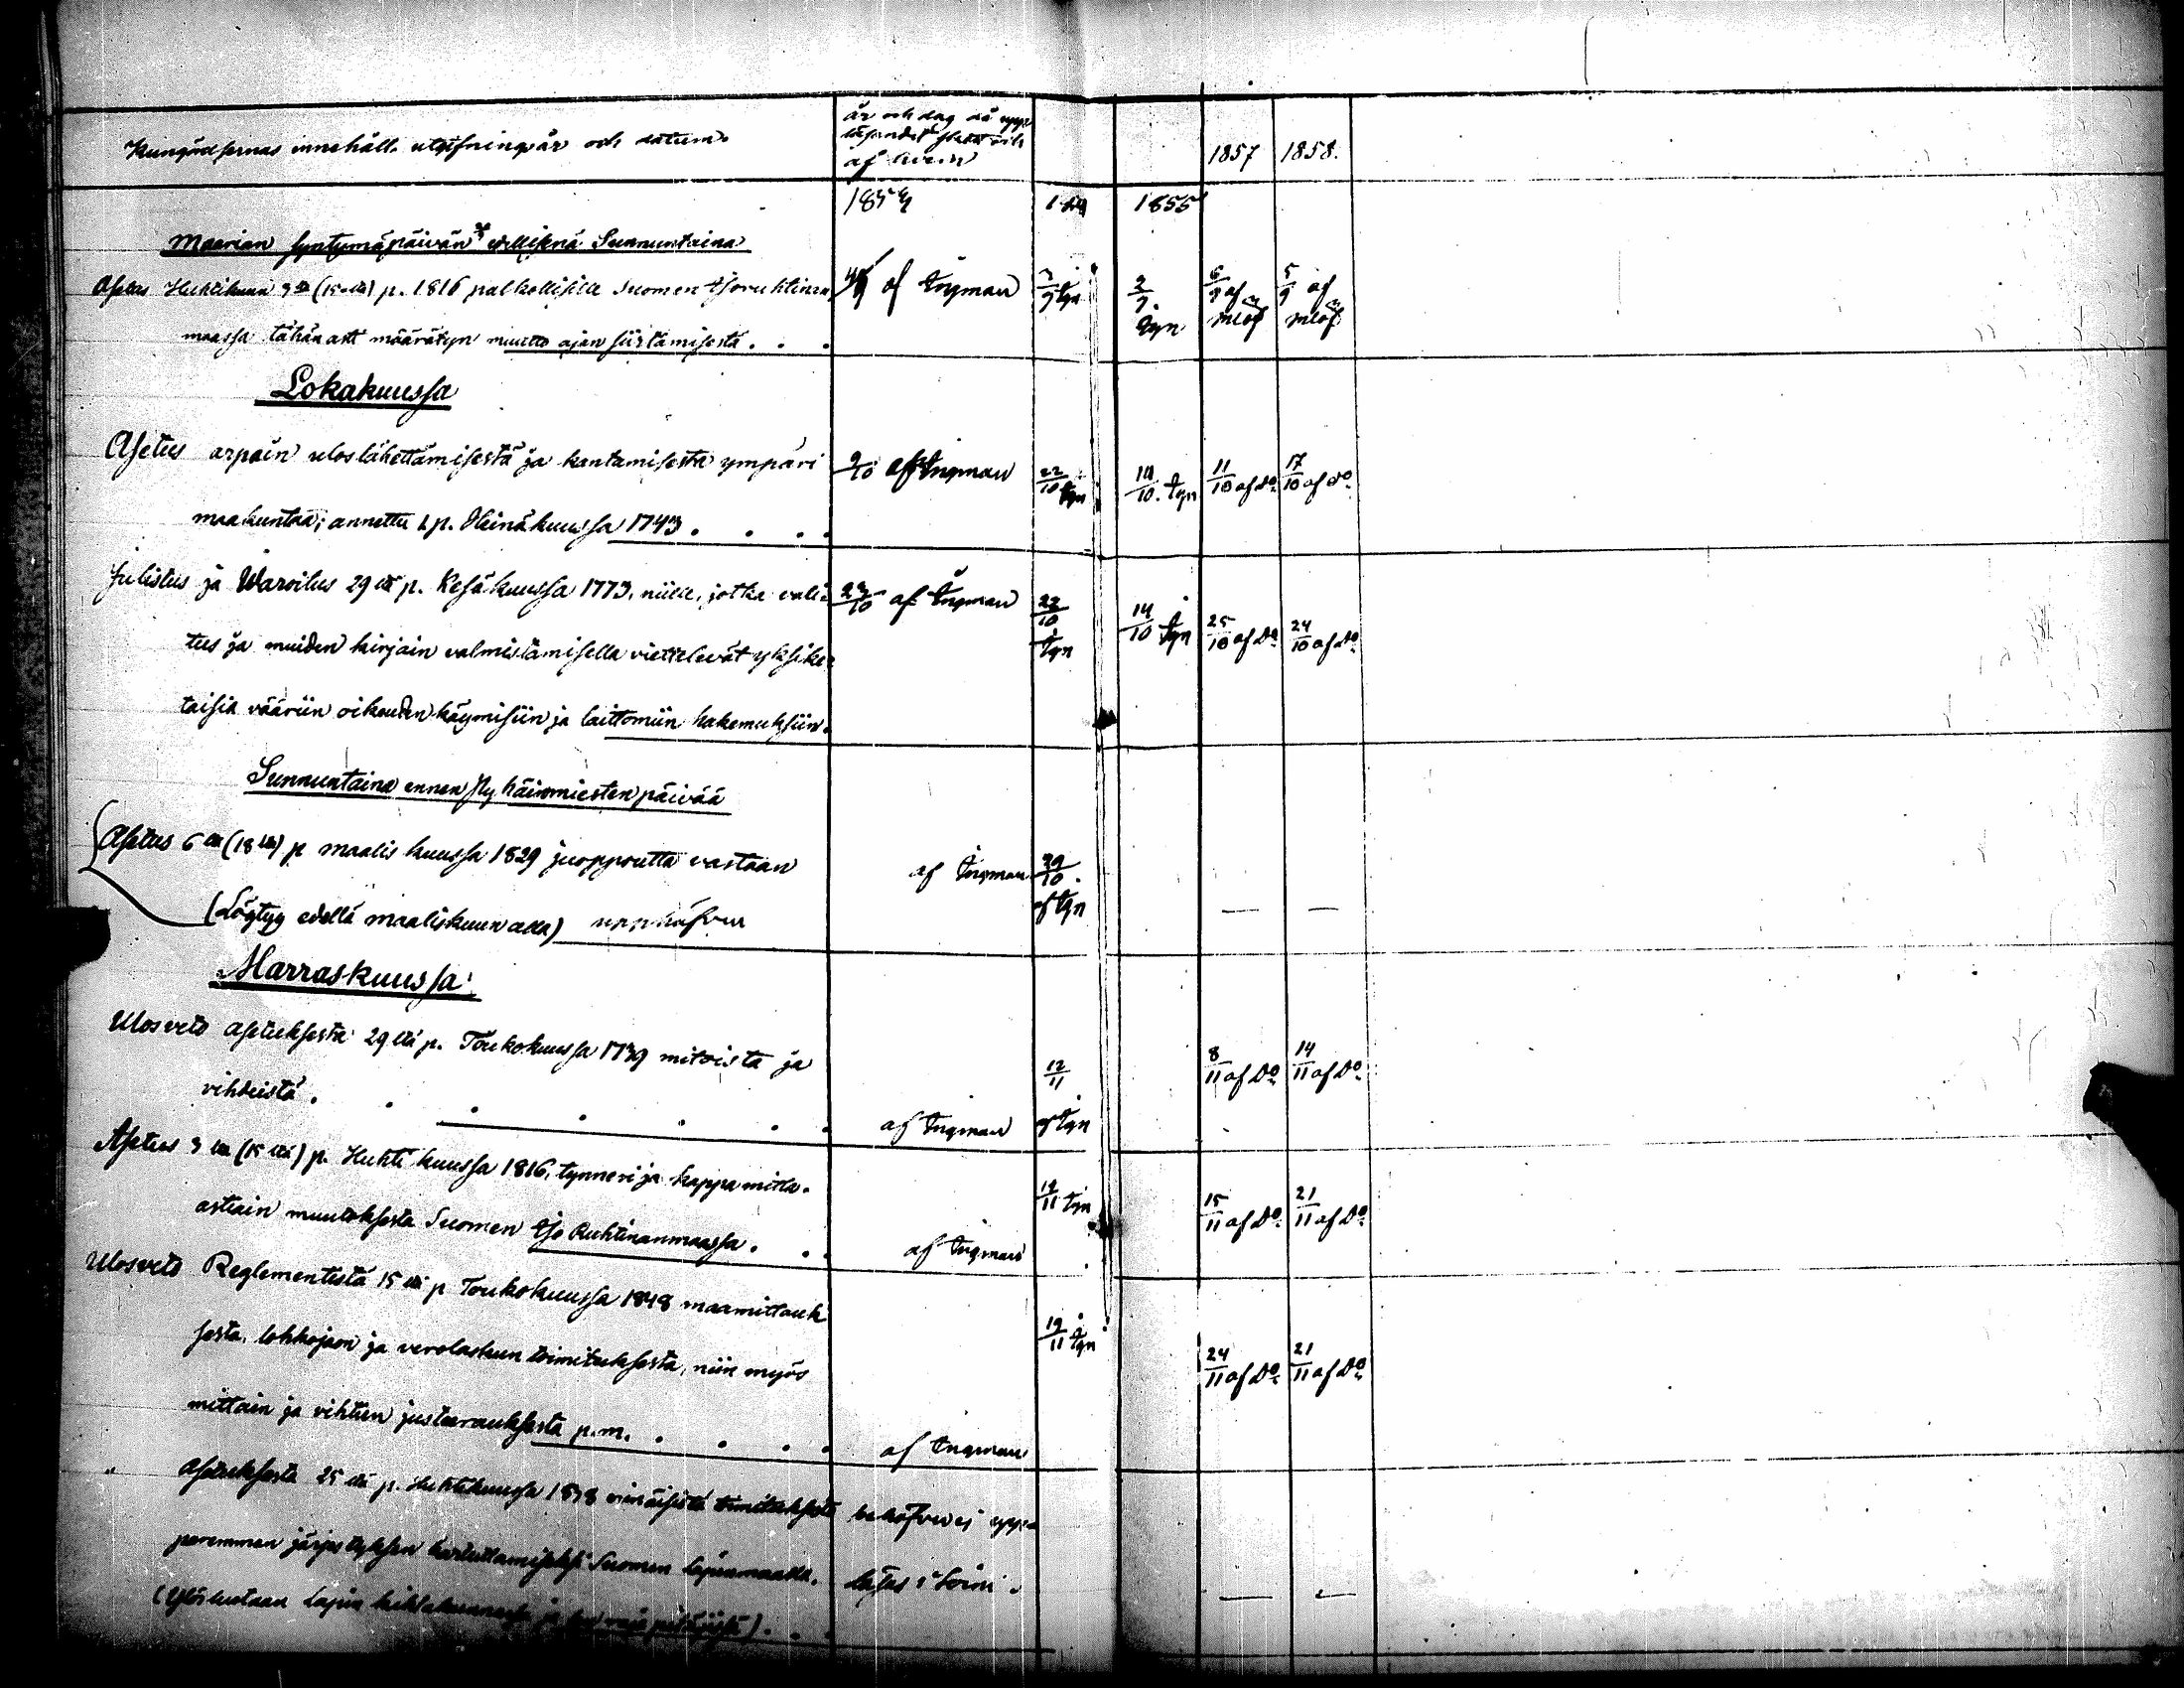 Kungörelsernas innehåll utgifningsår och datum.
år och dag då upp
läsandet skett och
af hvem
1857
1858.
1854
1855
Maarian syntymäpäivän edellisnä Sunnuntaina
Asetus Huhtikuun 3 na (15 na) p. 1816 palkollisille Suomen Isoruhtinan
maassa tähän asti määrätyn muutto ajan siirtämisestä . . .
af Ingman
7/9 Ign
2/9 Ign
6/9 af Mlöf
5/9 af Mlöf
Lokakuussa
Asetus arpain uloslähettämisestä ja kantamisesta ympäri
maakuntaa; annettu 1 p. Heinäkuussa 1743 . . . .
9/10 af Ingman
22/10 Ign
14/10 . Ign
11/10 af Do
17/10 af Do
Julistus ja Waroitus 29 tä p. Kesäkuussa 1773, niille, jotka vali-
tus ja muiden kirjain valmistämisella viettelevät yksiker-
taisia vääriin oikeuden käymisiin ja laittomiin hakemuksiin.
23/10 af Ingman
22/10 Ign
14/10 Ign
25/10 af Do
24/10 af Do
Sunnuntaina ennen Pyhäinmiesten päivää
Asetus 6 na (18 na) p maalis kuussa 1829 juoppoutta vastaan
(Löytyy edellä maaliskuun alla) upphäfven
af Ingman
29/10 . af Ign
— —
Marraskuussa
Ulosveto asetuksesta 29 tä p. Toukokuussa 1739 mitoista ja
vihdeistä . . . . . . .
af Ingman
12/11 af Ign
8/11 af Do
14/11 af Do
Asetus 3 na (15 na) p. Huhti kuussa 1816, tynneri ja kappa mitta-
astiain muutoksesta Suomen Iso Ruhtinanmaassa . . .
af Ingman
19/11 Ign
15/11 af Do
21/11 af Do
Ulosveto Reglementistä 15 tä p Toukokuussa 1848 maamittauk
sesta, lohkojaon ja verolaskun toimituksesta, niin myös
mittain ja vihtien justeerauksesta p.m. . . . .
af Ingman
19/11 Ign
24/11 af Do
21/11 af Do
" Asetuksesta 25 tä p. Huhtikuussa 1838 erinäisistä toimituksista
paremman järjestyksen Suomen Lapinmaassa.
behöfver ej upp-
läsas i
(Ylösluetaan Lapin
— —